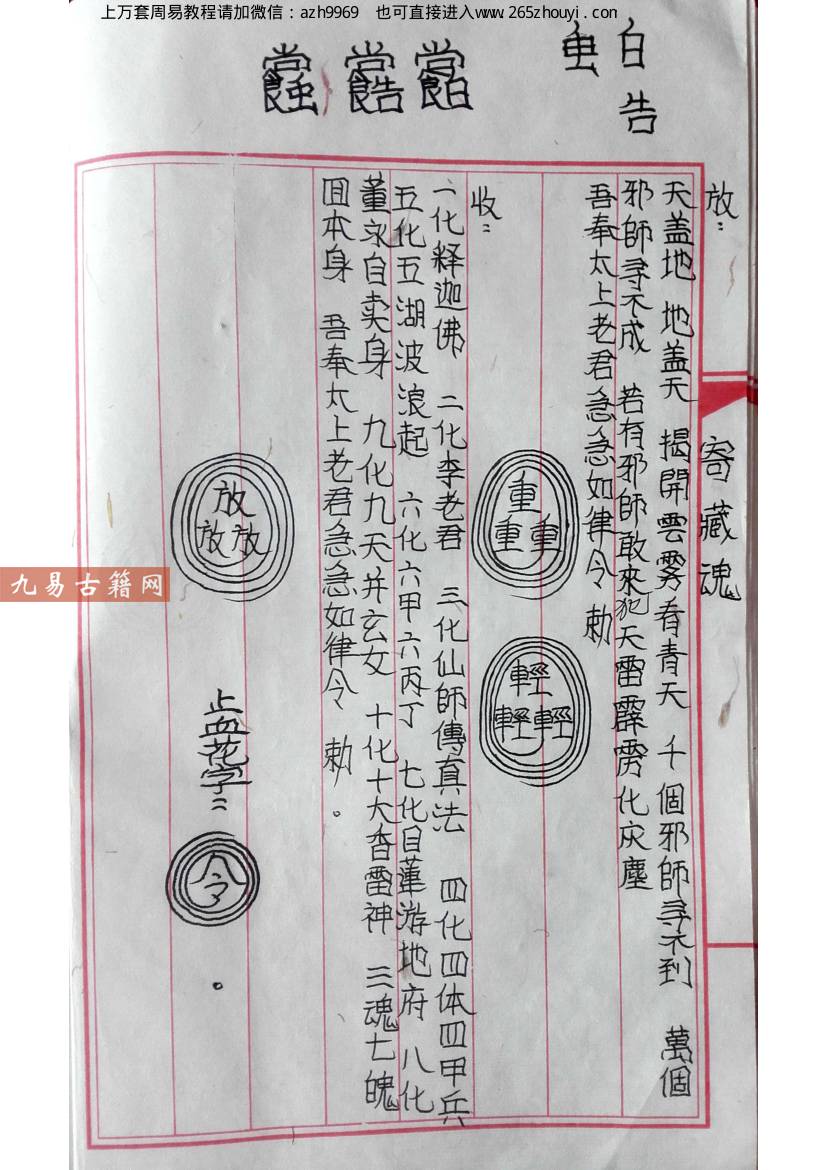 上万套周易教程请加微信：azh9969　也可直接进入www.265zhouyi.com
白
告
寄藏魂
放：
天盖地　地盖天　揭開雲雾看青天　千個邪師寻不到　萬個
邪師寻不成　若有邪師敢來犯天雷霹雳化灰塵
吾奉太上老君急急如律令　勅
重
重重
輕
輕輕
收：
一化释迦佛　二化李老君　三化仙師傳真法　四化四体四甲兵
五化五湖波浪起　六化六甲六丙丁　七化目蓮游地府　八化
董永自卖身　九化九天并玄女　十化十大香雷神　三魂七魄
回本身　吾奉太上老君急急如律令　勅。
放
放放
止血花字：
令
。
九易古籍网